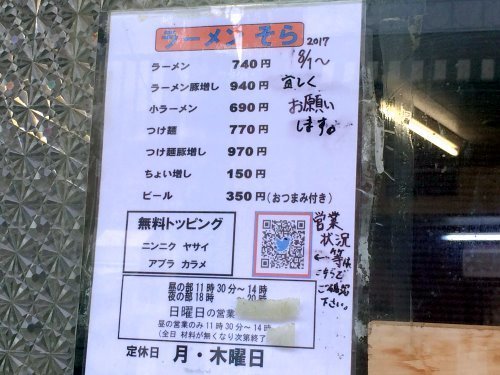 ラーメン そら
2017
8/1〜
宜しく
お願い
します。
ラーメン 740円
ラーメン豚増し 940円
小ラーメン 690円
つけ麺 770円
つけ麺豚増し 970円
ちょい増し 150円
ビール 350円(おつまみ付き)
無料トッピング
ニンニク ヤサイ
アブラ カラメ
営業
状況
等は
←こちらで
ご確認
下さい。
昼の部11時30分〜14時
夜の部18時 〜20時
日曜日の営業
昼の営業のみ11時30分〜14時
(全日 材料が無くなり次第終了
定休日 月・木曜日